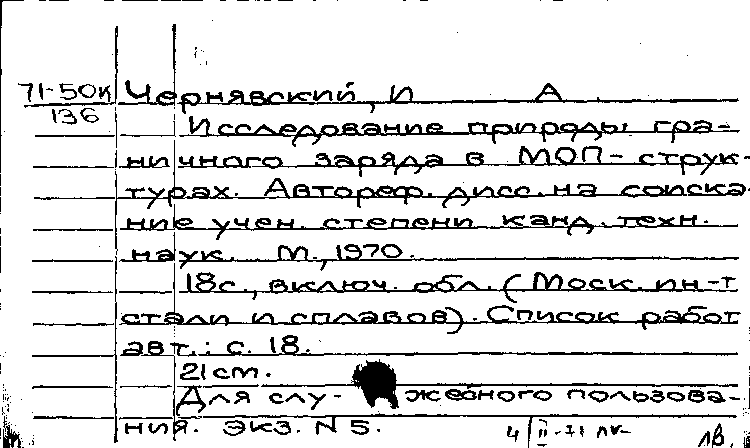 71-50к Чернявский, И А
136
Исследование природы гра-
ничного заряда в МОП-струк-
турах. Автореф. дисс. на соиска-
ние учен. степени канд. техн.
наук. М., 1970.
18с., включ. обл. (Моск. ин-т
стали и сплавов). Список работ
авт.: с. 18.
21 см.
Для слу- жебного пользова-
ния. Экз. N 5.
4 II-71
лв.